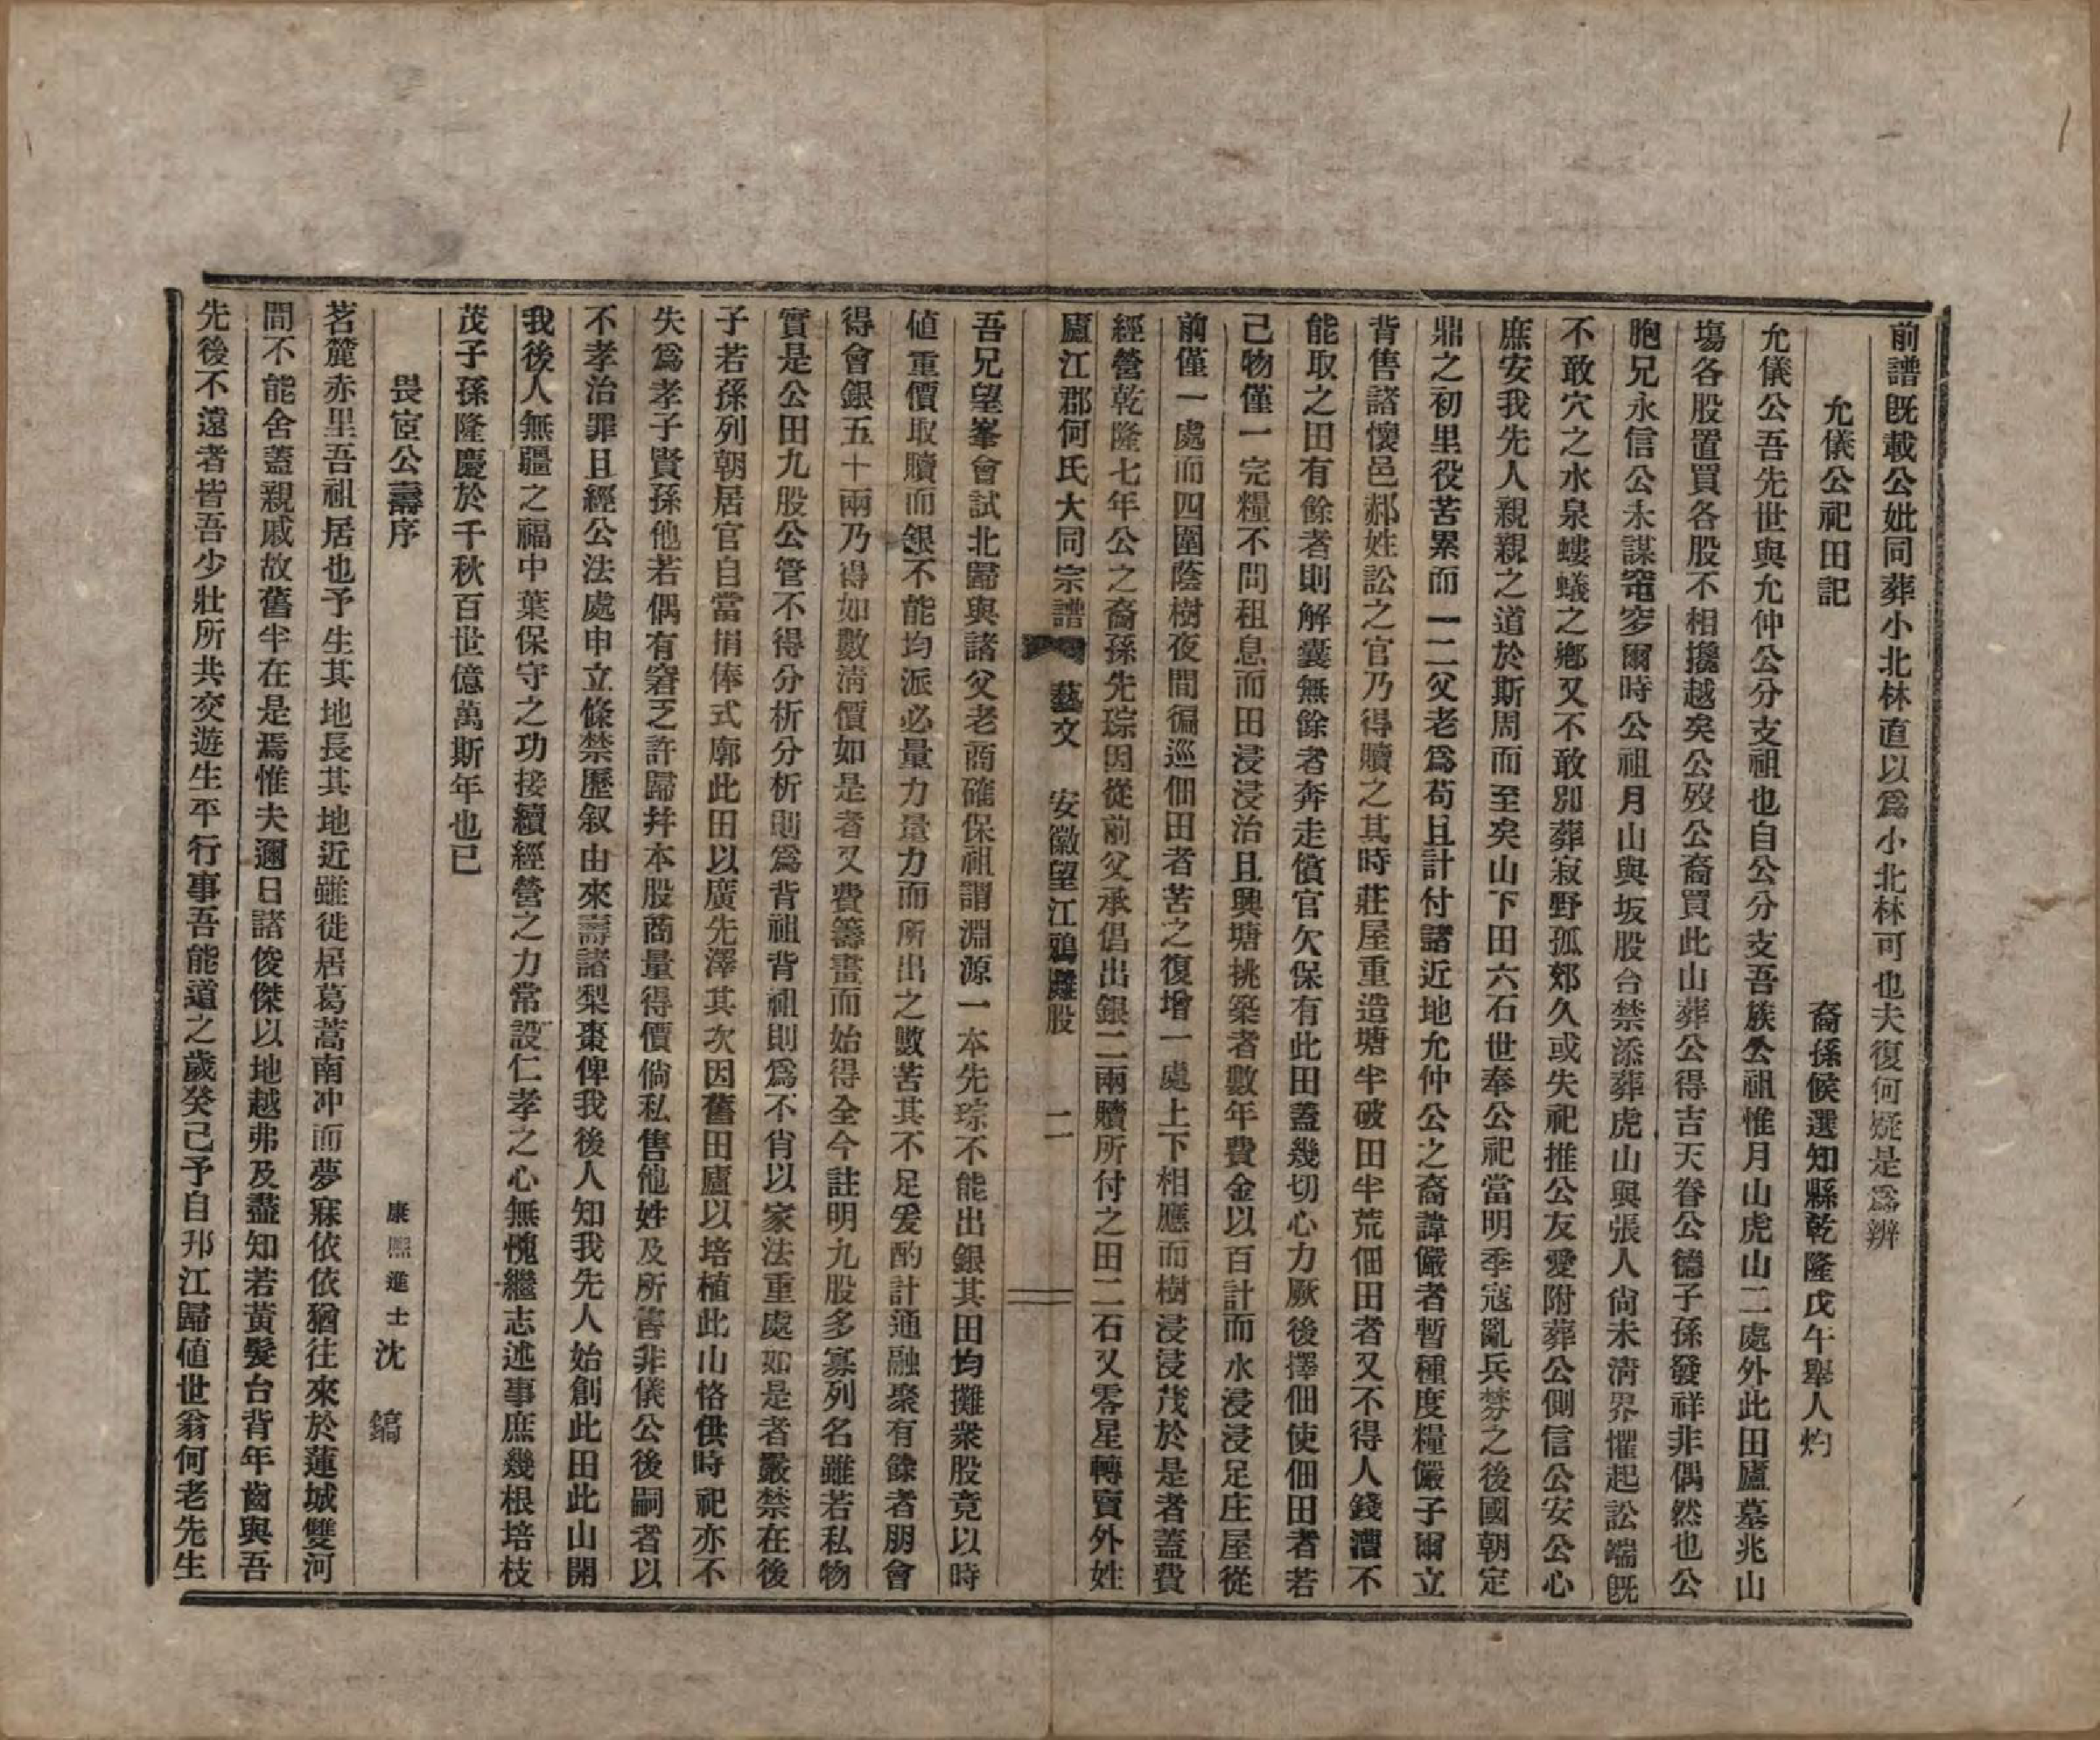 前譜既載公妣同葬小北林直以爲小北林可也夫復何疑是爲辨
允儀公祀田記
裔孫候選知縣乾隆戊午舉人灼
允儀公吾先世與允仲公分支祖也自公分支吾族公祖惟月山虎山二處外此田廬墓兆山
塲各股置買各股不相攙越矣公歿公裔買此山葬公得吉天眷公德子孫發祥非偶然也公
胞兄永信公未謀窀穸爾時公祖月山與坂股台禁添葬虎山與張人尙未淸界懼起訟端既
不敢穴之水泉螻蟻之鄕又不敢別葬寂野孤郊久或失祀推公友愛附葬公側信公安公心
庶安我先人親親之道於斯周而至矣山下田六石世奉公祀當明季寇亂兵棼之後國朝定
鼎之初里役苦累而一二父老爲苟且計付諸近地允仲公之裔諱儼者暫種度糧儼子爾立
背售諸懷邑郝姓訟之官乃得贖之其時莊屋重造塘半破田半荒佃田者又不得人錢漕不
能取之田有餘者則解囊無餘者奔走償官欠保有此田蓋幾切心力厥後擇佃使佃田者若
己物僅一完糧不問租息而田浸浸治且興塘挑築者數年費金以百計而水浸浸足庄屋從
前僅一處而四圍蔭樹夜間徧巡佃田者苦之復增一處上下相應而樹浸浸茂於是者蓋費
經營乾隆七年公之裔孫先琮因從前父承倡出銀二兩贖所付之田二石又零星轉賣外姓
廬江郡何氏大同宗譜 藝文 安徽望江鴉灘股 二
吾兄望峯會試北歸與諸父老商確保祖謂淵源一本先琮不能出銀其田均攤衆股竟以時
値重價取贖而銀不能均派必量力量力而所出之數苦其不足爰酌計通融聚有餘者朋會
得會銀五十兩乃得如數淸價如是者又費籌畫而始得全今註明九股多寡列名雖若私物
實是公田九股公管不得分析分析則爲背祖背祖則爲不肖以家法重處如是者嚴禁在後
子若孫列朝居官自當捐俸式廓此田以廣先澤其次因舊田廬以培植此山恪供時祀亦不
失爲孝子賢孫他若偶有窘乏許歸幷本股商量得價倘私售他姓及所售非儀公後嗣者以
不孝治罪且經公法處申立條禁歷叙由來壽諸梨棗俾我後人知我先人始創此田此山開
我後人無疆之福中葉保守之功接續經營之力常設仁孝之心無愧繼志述事庶幾根培枝
茂子孫隆慶於千秋百世億萬斯年也已
畏宦公壽序
康熙進士沈 鎬
茗麓赤里吾祖居也予生其地長其地近雖徙居葛蒿南冲而夢寐依依猶往來於蓮城雙河
間不能舍蓋親戚故舊半在是焉惟夫邇日諸俊傑以地越弗及盡知若黃髮台背年齒與吾
先後不遠者皆吾少壯所共交遊生平行事吾能道之歲癸已予自邗江歸値世翁何老先生